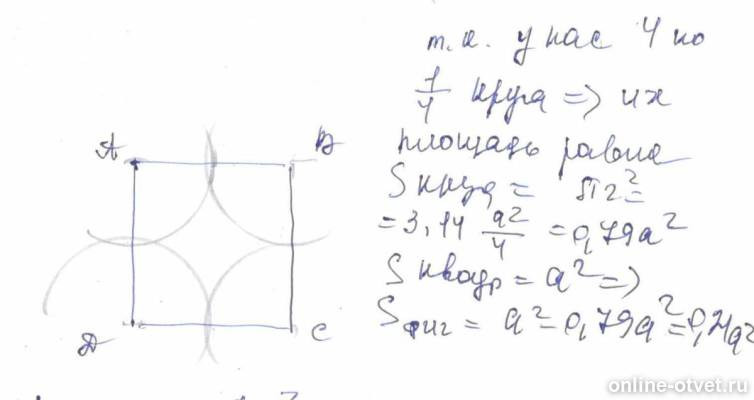 A
B
D
C
т.к. у нас 4 по
1/4 круга => их
площадь равна
S круг = πr² =
= 3,14 a²/4 = 0,79a²
S квадр = a² =>
S фиг = a² - 0,79a² = 0,21a²
online-otvet.ru